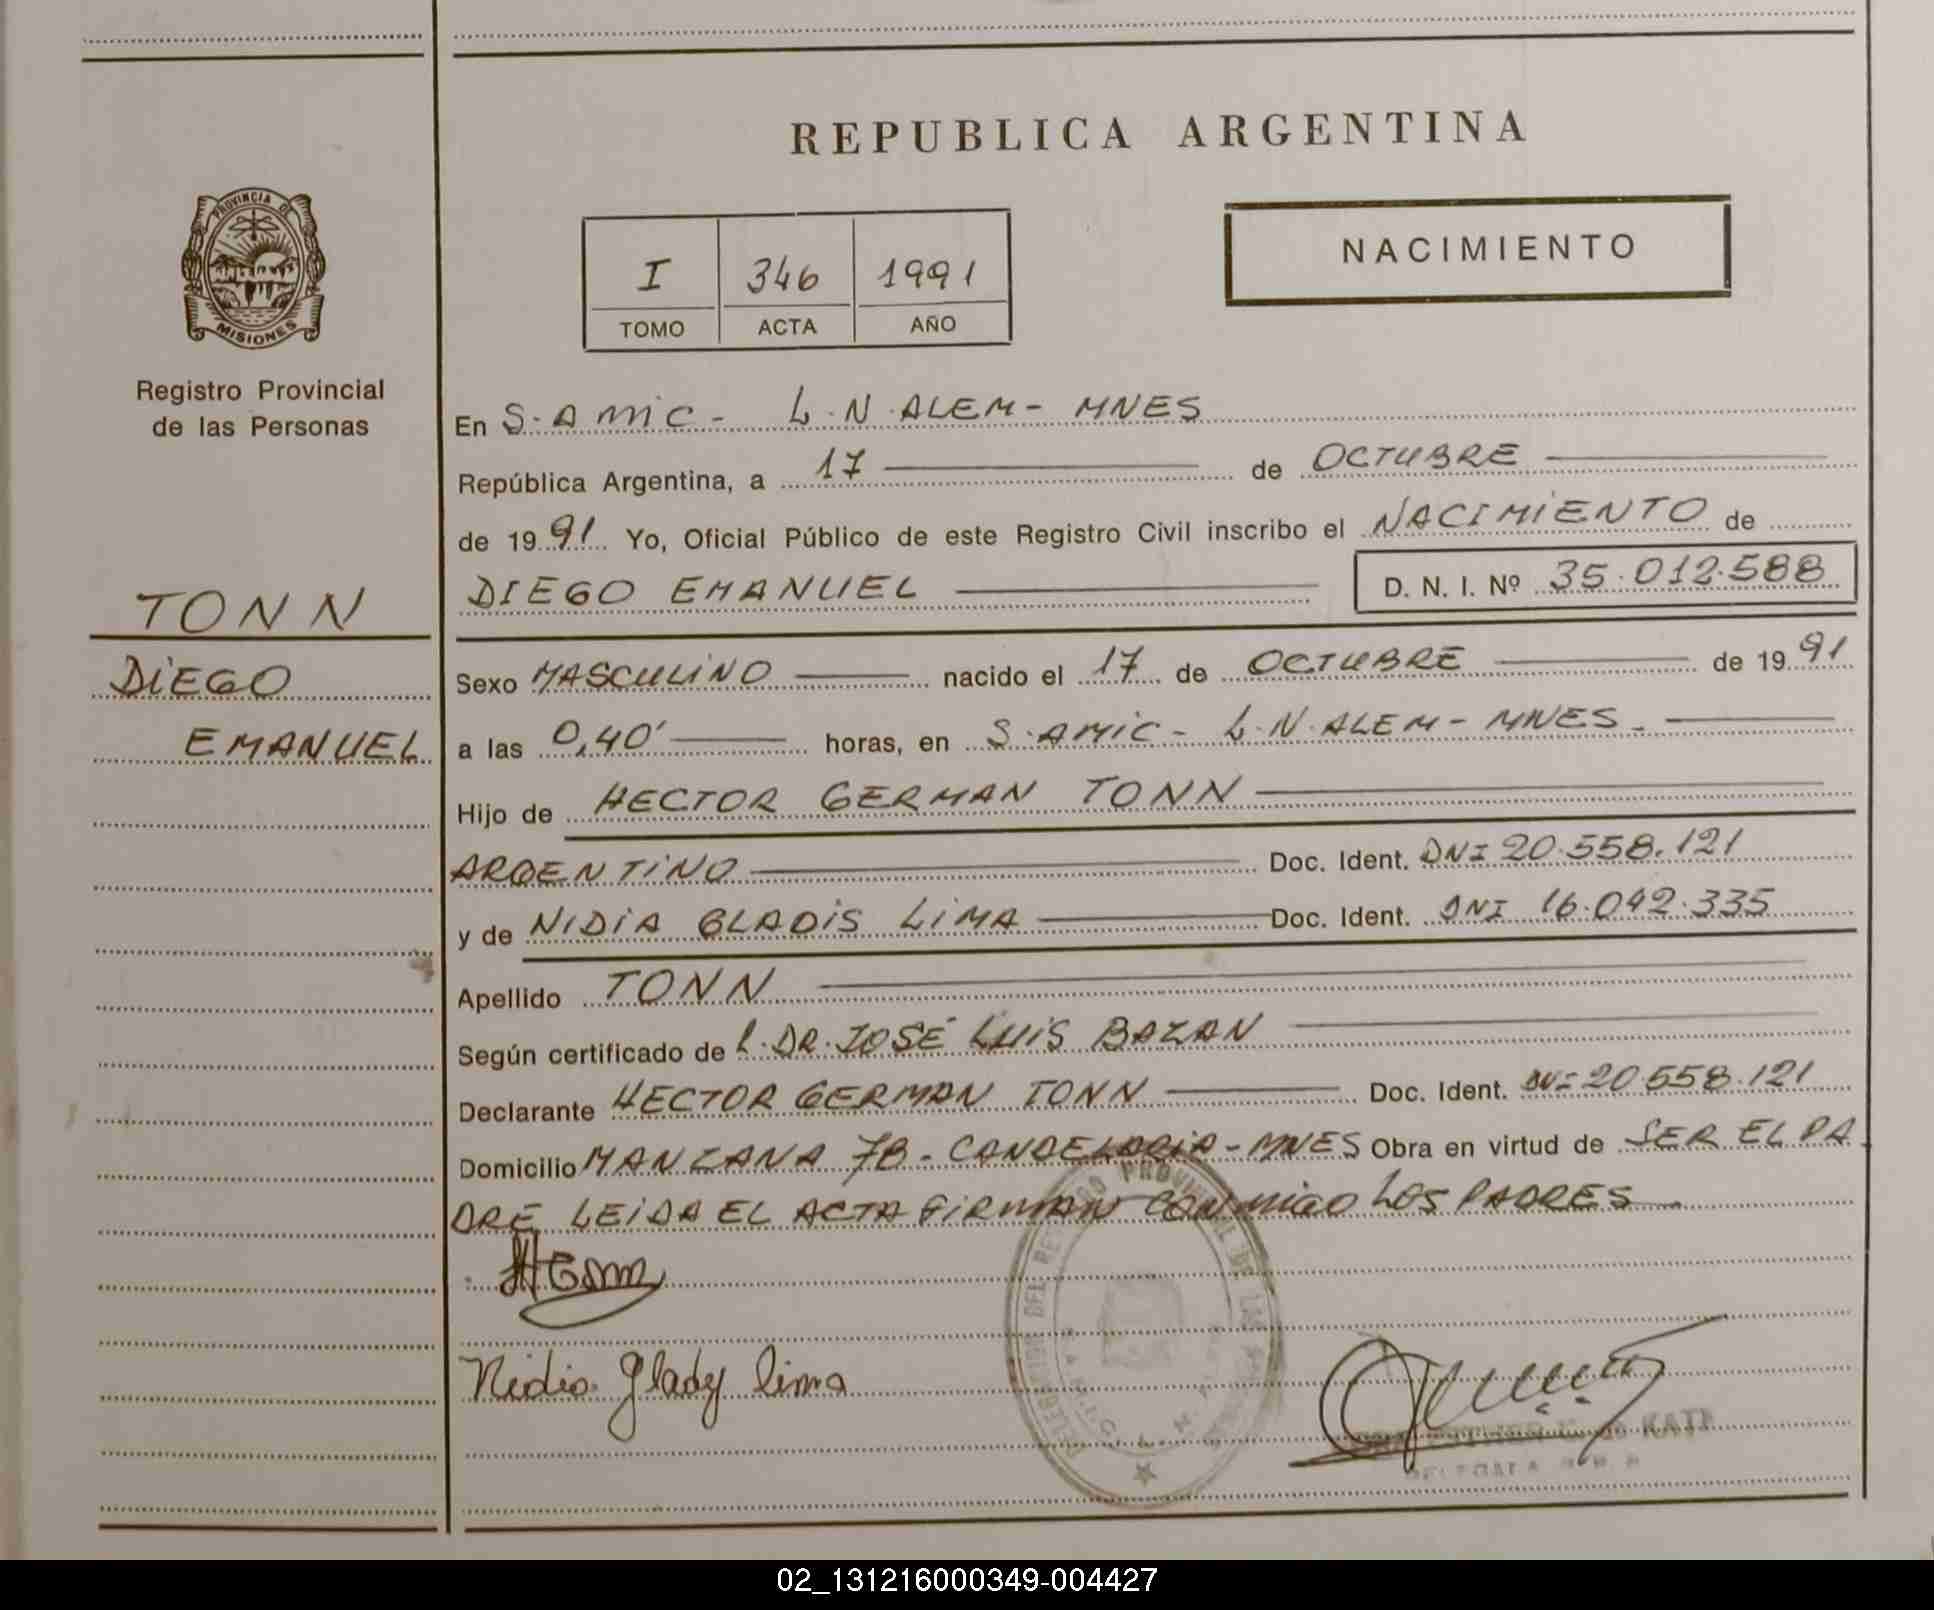 REPUBLICA ARGENTINA
PROVINCIA DE
MISIONES
Registro Provincial
de las Personas
TONN
DIEGO
EMANUEL
I 346 1991
TOMO ACTA AÑO
NACIMIENTO
En S. AMIC - L.N. ALEM - MNES
República Argentina, a 17 de OCTUBRE
de 1991 Yo, Oficial Público de este Registro Civil inscribo el NACIMIENTO de
DIEGO EMANUEL D. N. I. Nº 35.012.588
Sexo MASCULINO nacido el 17 de OCTUBRE de 1991
a las 0,40' horas, en S. AMIC - L.N. ALEM - MNES -
Hijo de HECTOR GERMAN TONN
ARGENTINO Doc. Ident. DNI 20.558.121
y de NIDIA GLADIS LIMA Doc. Ident. DNI 16.042.335
Apellido TONN
Según certificado de L. DR. JOSÉ LUIS BAZAN
Declarante HECTOR GERMAN TONN Doc. Ident. DNI 20558.121
Domicilio MANZANA 7B - CANDELARIA - MNES Obra en virtud de SER EL PA
DRE LEIDA EL ACTA FIRMAN CONMIGO LOS PADRES
Nidia Glady Lima
DELEGACION DEL REGISTRO PROVINCIAL DE LAS PERSONAS
DELEGADA
02_131216000349-004427